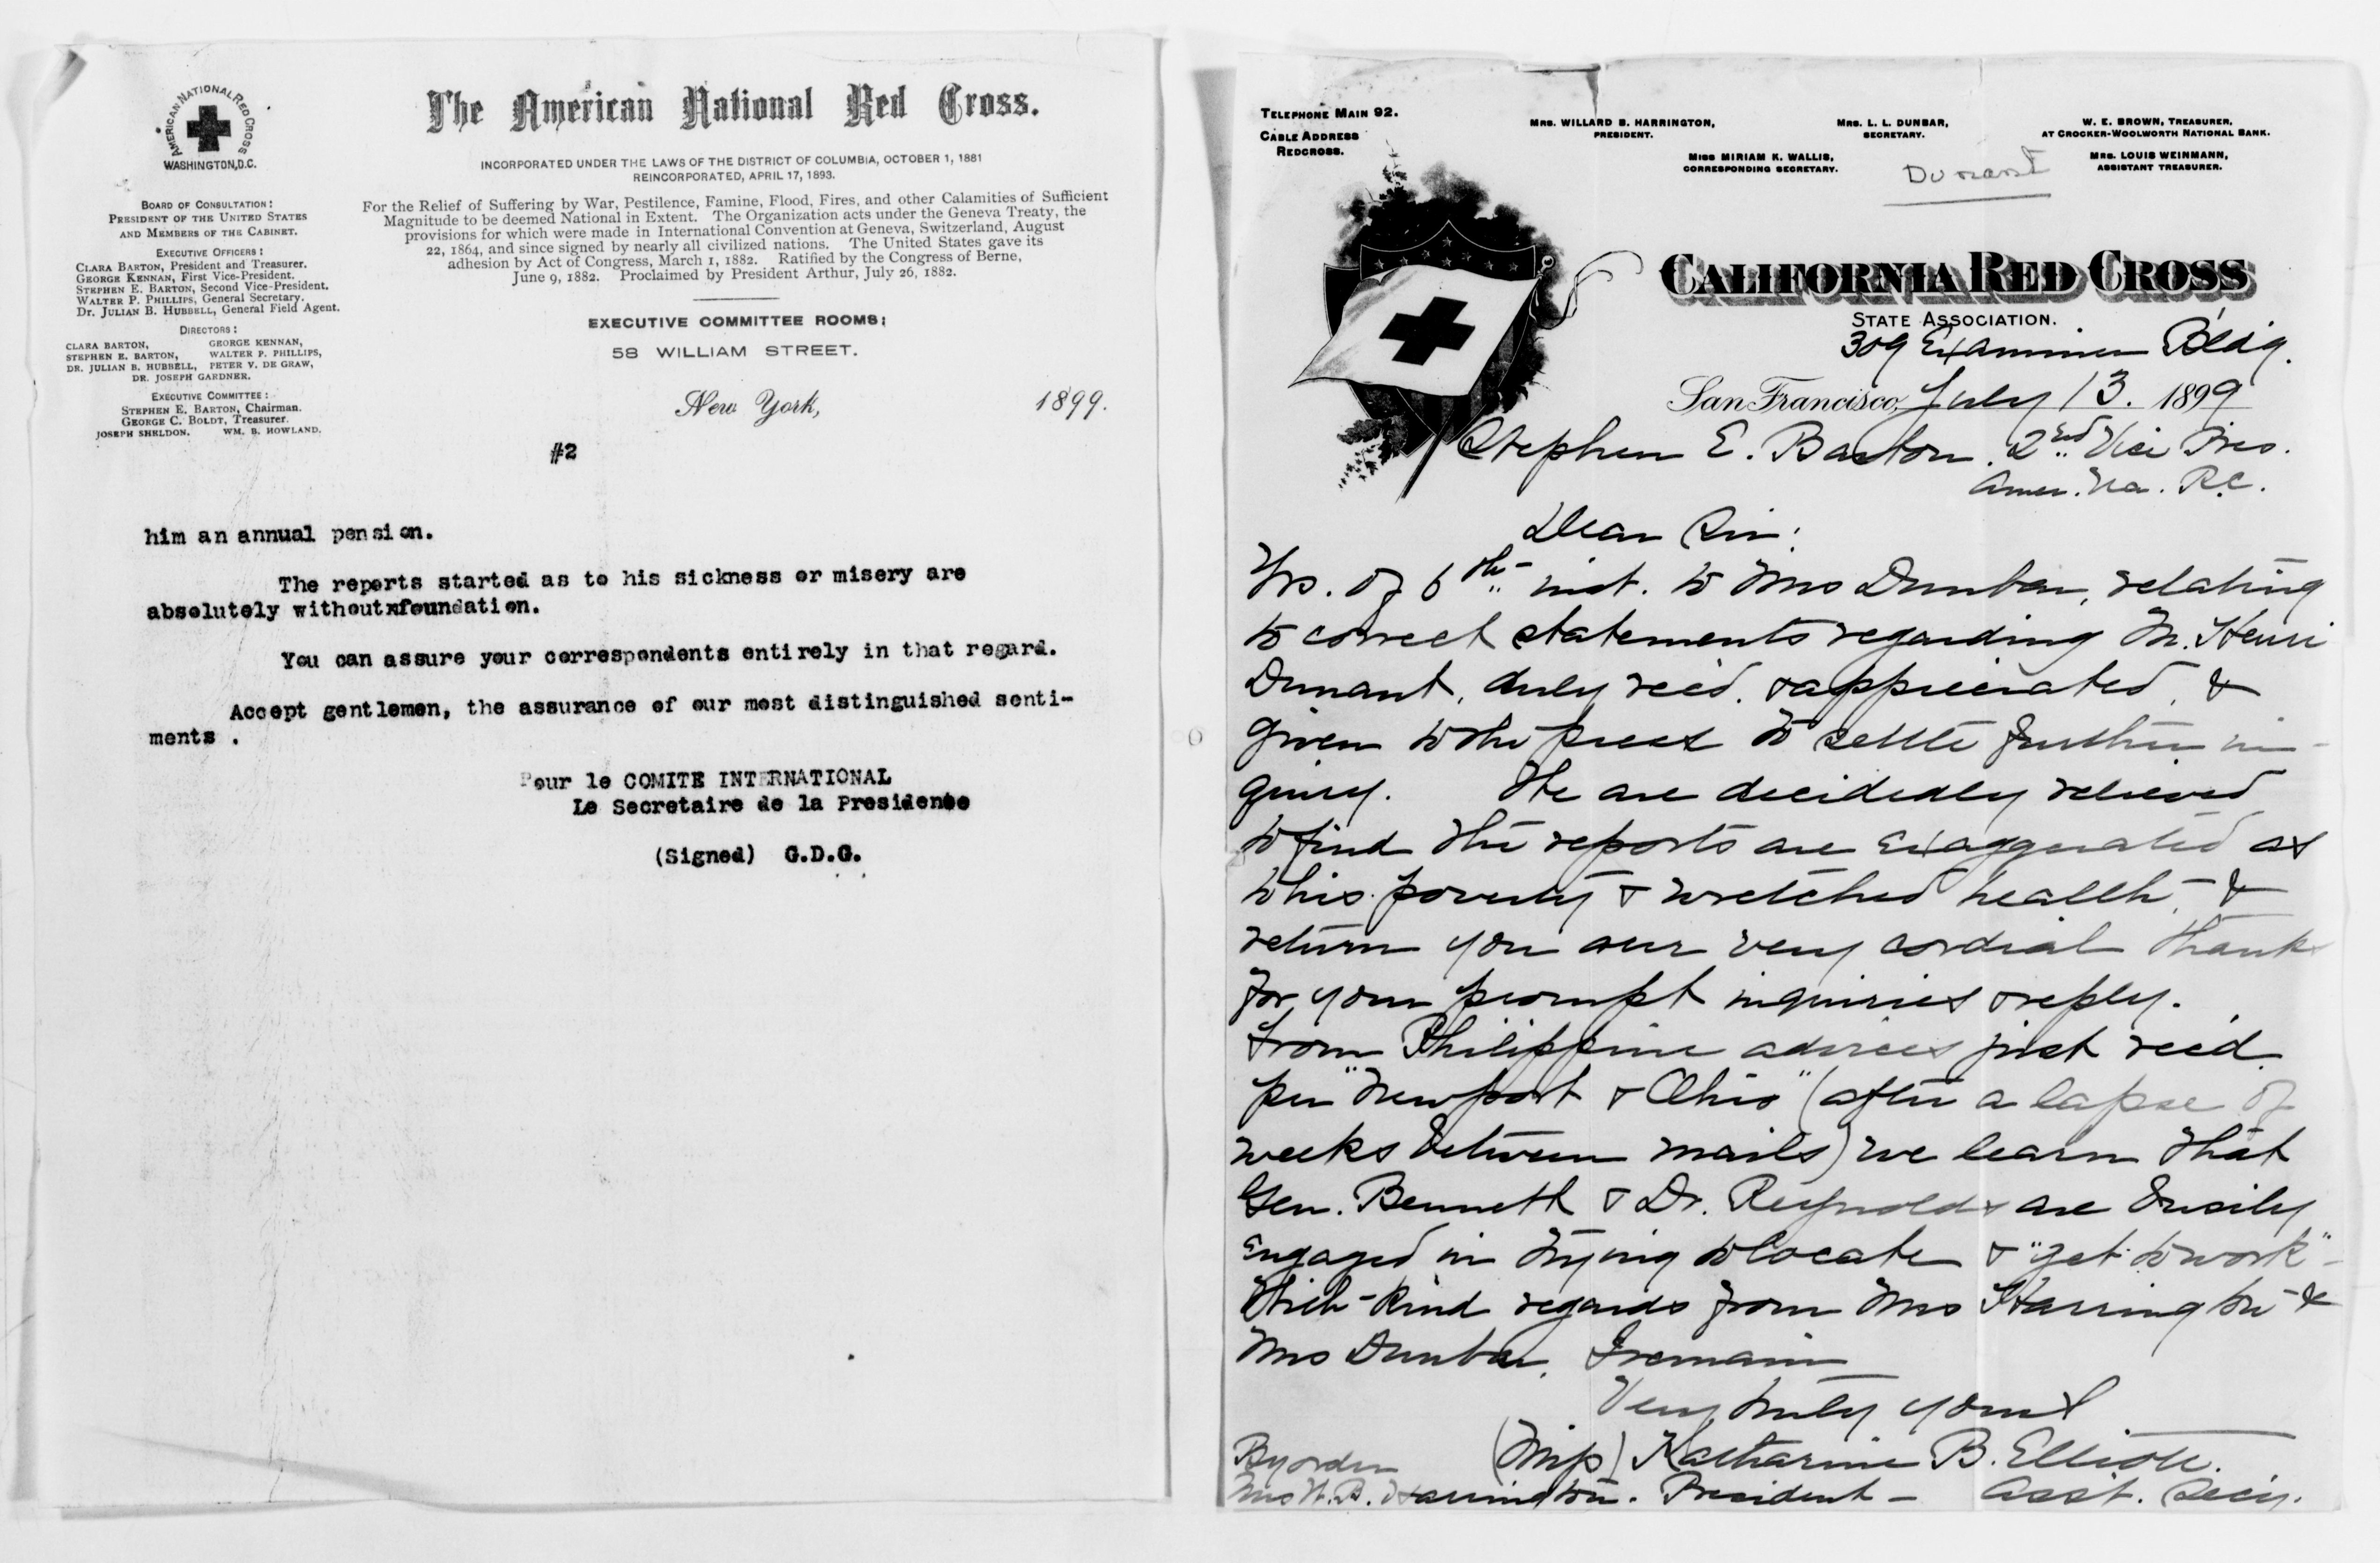 AMERICAN NATIONAL RED CROSS
WASHINGTON, D.C.
BOARD OF CONSULTATION:
PRESIDENT OF THE UNITED STATES
AND MEMBERS OF THE CABINET.
EXECUTIVE OFFICERS:
CLARA BARTON, President and Treasurer.
GEORGE KENNAN, First Vice-President.
STEPHEN E. BARTON, Second Vice-President.
WALTER P. PHILLIPS, General Secretary.
Dr. JULIAN B. HUBBELL, General Field Agent.
DIRECTORS:
CLARA BARTON, GEORGE KENNAN,
STEPHEN E. BARTON, WALTER P. PHILLIPS,
DR. JULIAN B. HUBBELL, PETER V. DE GRAW,
DR. JOSEPH GARDNER.
EXECUTIVE COMMITTEE:
STEPHEN E. BARTON, Chairman.
GEORGE C. BOLDT, Treasurer.
JOSEPH SHELDON. WM. B. HOWLAND.
The American National Red Cross.
INCORPORATED UNDER THE LAWS OF THE DISTRICT OF COLUMBIA, OCTOBER 1, 1881
REINCORPORATED, APRIL 17, 1893.
For the Relief of Suffering by War, Pestilence, Famine, Flood, Fires, and other Calamities of Sufficient
Magnitude to be deemed National in Extent. The Organization acts under the Geneva Treaty, the
provisions for which were made in International Convention at Geneva, Switzerland, August
22, 1864, and since signed by nearly all civilized nations. The United States gave its
adhesion by Act of Congress, March 1, 1882. Ratified by the Congress of Berne,
June 9, 1882. Proclaimed by President Arthur, July 26, 1882.
EXECUTIVE COMMITTEE ROOMS:
58 WILLIAM STREET.
New York, 1899.
#2
him an annual pension.
The reports started as to his sickness or misery are
absolutely withoutxfoundation.
You can assure your correspondents entirely in that regard.
Accept gentlemen, the assurance of our most distinguished senti-
ments .
Pour le COMITE INTERNATIONAL
Le Secretaire de la Presidence
(Signed) G.D.G.
TELEPHONE MAIN 92.
CABLE ADDRESS
REDCROSS.
MRS. WILLARD B. HARRINGTON,
PRESIDENT.
MRS. L. L. DUNBAR,
SECRETARY.
W. E. BROWN, TREASURER,
AT CROCKER-WOOLWORTH NATIONAL BANK.
MISS MIRIAM K. WALLIS,
CORRESPONDING SECRETARY.
MRS. LOUIS WEINMANN,
ASSISTANT TREASURER.
Dunant
CALIFORNIA RED CROSS
STATE ASSOCIATION.
309 Examiner Bldg.
San Francisco, July 13. 1899
Stephen E. Barton. 2nd Vice Pres.
Amer. Na. R.C.
Dear Sir:
Yrs. of 6th inst. to Mrs Dunbar, relating
to correct statements regarding M. Henri
Dunant, duly rec'd. & appreciated, &
given to the press to settle further in-
quiry. We are decidedly relieved
to find the reports are exaggerated as
to his poverty & wretched health, &
return you our very cordial thanks
for your prompt inquiries & reply.
From Philippine advices just rec'd.
per "Newport & Ohio" (after a lapse of
weeks between mails) we learn that
Gen. Bennett & Dr. Reynolds are busily
engaged in trying to locate & "get to work"-
With kind regards from Mrs Harrington &
Mrs Dunbar, I remain
Very truly yours
(Miss) Katharine B. Elliott.
By order
Mrs W. B. Harrington. President - Asst. Secy.